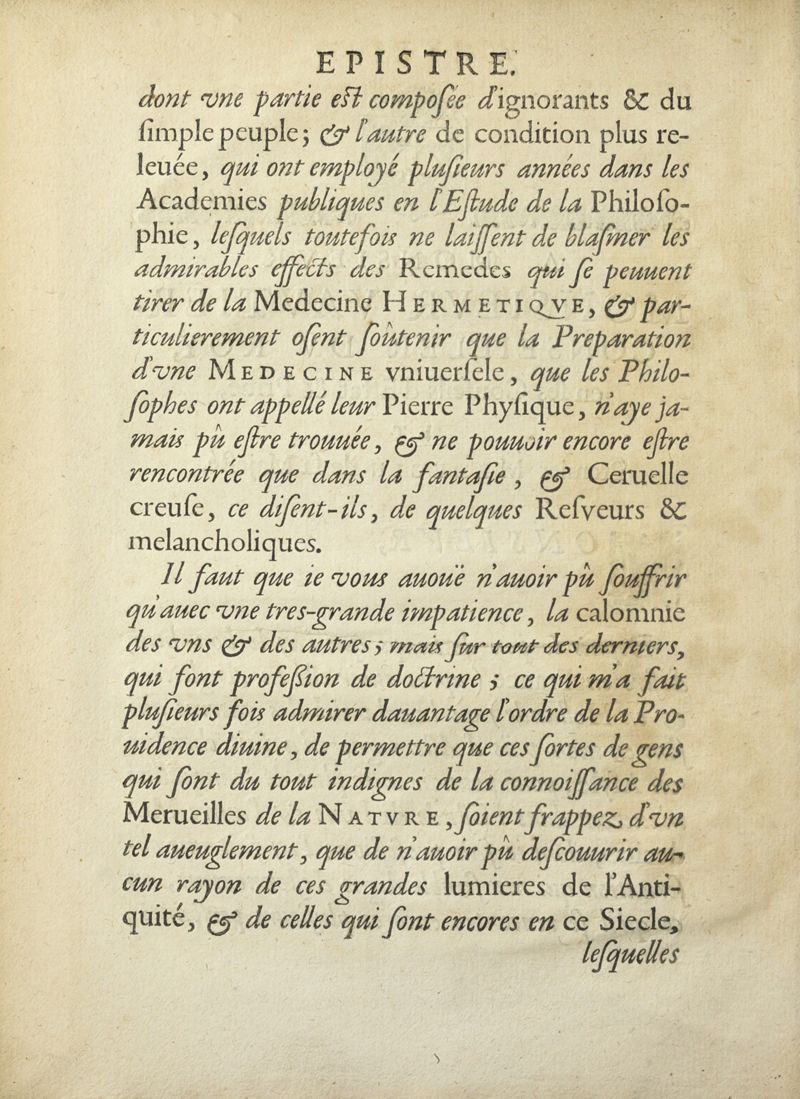 EPISTRE.
dont vne partie eſt compoſée d'ignorants & du
ſimple peuple; & l'autre de condition plus re-
leuée, qui ont employé pluſieurs années dans les
Academies publiques en l'Eſtude de la Philoſo-
phie, leſquels toutefois ne laiſſent de blaſmer les
admirables effects des Remedes qui ſe peuuent
tirer de la Medecine HERMETIQVE, & par-
ticulierement oſent ſoûtenir que la Preparation
d'vne MEDECINE vniuerſele, que les Philo-
ſophes ont appellé leur Pierre Phyſique, n'aye ja-
mais pû eſtre trouuée, & ne pouuoir encore eſtre
rencontrée que dans la fantaſie, & Ceruelle
creuſe, ce diſent-ils, de quelques Reſveurs &
melancholiques.
Il faut que ie vous auouë n'auoir pû ſouffrir
qu'auec vne tres-grande impatience, la calomnie
des vns & des autres; mais ſur tout des derniers,
qui font profeſſion de doctrine; ce qui m'a fait
pluſieurs fois admirer dauantage l'ordre de la Pro-
uidence diuine, de permettre que ces ſortes de gens
qui ſont du tout indignes de la connoiſſance des
Merueilles de la NATVRE, ſoient frappez d'vn
tel aueuglement, que de n'auoir pû deſcouurir au-
cun rayon de ces grandes lumieres de l'Anti-
quité, & de celles qui ſont encores en ce Siecle,
leſquelles